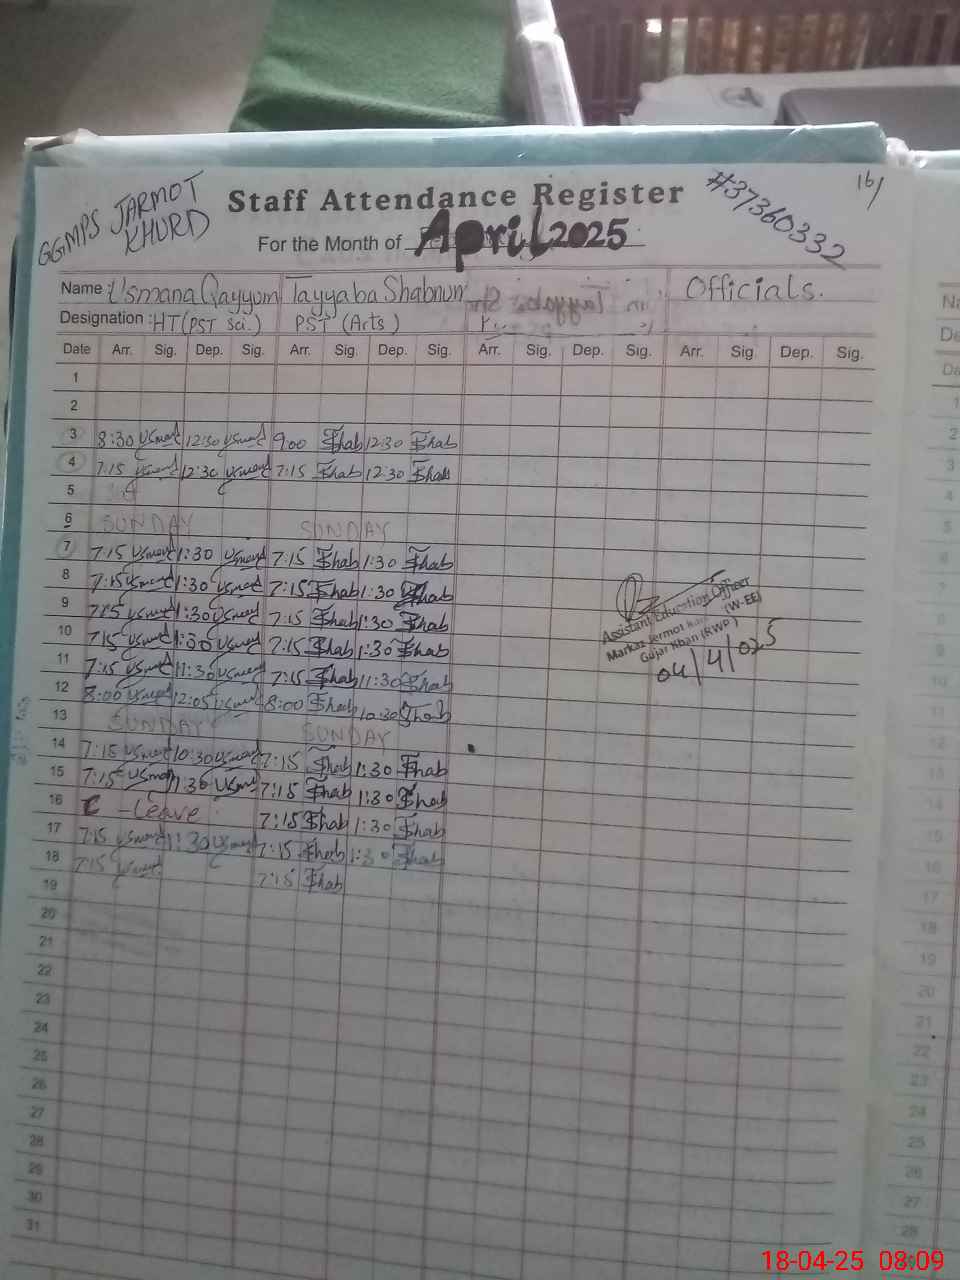 GGMPS JARMOT KHURD
Staff Attendance Register
#37360332
16/
For the Month of April 2025
Name : Usmana Qayyum Tayyaba Shabnum Officials.
Designation : HT (PST Sci.) PST (Arts)
Date Arr. Sig. Dep. Sig. Arr. Sig. Dep. Sig. Arr. Sig. Dep. Sig. Arr. Sig. Dep. Sig.
1
2
3 8:30 Usmana 12:30 Usmana 9:00 Shab 12:30 Shab
4 7:15 Usmana 12:30 Usmana 7:15 Shab 12:30 Shab
5
6 SUNDAY SUNDAY
7 7:15 Usmana 1:30 Usmana 7:15 Shab 1:30 Shab
8 7:15 Usmana 1:30 Usmana 7:15 Shab 1:30 Shab
9 7:15 Usmana 1:30 Usmana 7:15 Shab 1:30 Shab
10 7:15 Usmana 1:30 Usmana 7:15 Shab 1:30 Shab
11 7:15 Usmana 11:30 Usmana 7:15 Shab 11:30 Shab
12 8:00 Usmana 12:05 Usmana 8:00 Shab 10:30 Shab
13 SUNDAY SUNDAY
14 7:15 Usmana 10:30 Usmana 7:15 Shab 1:30 Shab
15 7:15 Usmana 1:30 Usmana 7:15 Shab 1:30 Shab
16 C - Leave 7:15 Shab 1:30 Shab
17 7:15 Usmana 1:30 Usmana 7:15 Shab 1:30 Shab
18 7:15 Usmana 7:15 Shab
19
20
21
22
23
24
25
26
27
28
29
30
31
Assistant Education Officer
Markaz Jermot (W-EE)
Gujar Khan (RWP)
04/4/025
18-04-25 08:09